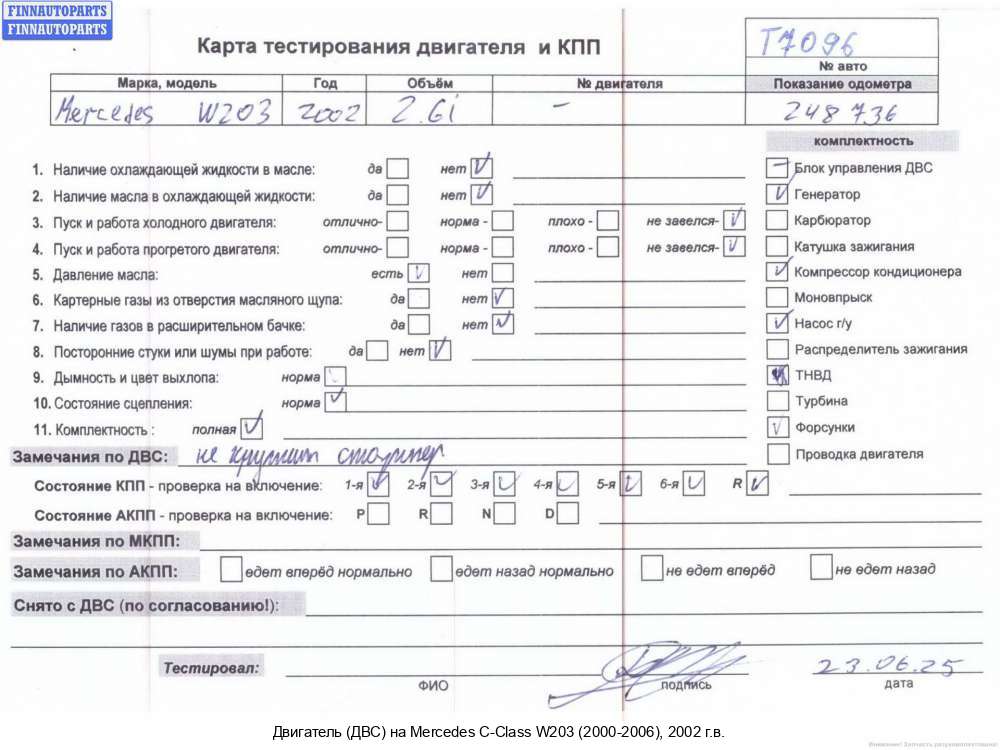 FINNAUTOPARTS
FINNAUTOPARTS
Карта тестирования двигателя и КПП
T7096
№ авто
Марка, модель Год Объём № двигателя Показание одометра
Mercedes W203 2002 2.6i – 248 736
комплектность
1. Наличие охлаждающей жидкости в масле: да нет V
Блок управления ДВС
2. Наличие масла в охлаждающей жидкости: да нет V
Генератор
3. Пуск и работа холодного двигателя: отлично- норма - плохо - не завелся- V
Карбюратор
4. Пуск и работа прогретого двигателя: отлично- норма - плохо - не завелся- V
Катушка зажигания
5. Давление масла: есть V нет
Компрессор кондиционера
6. Картерные газы из отверстия масляного щупа: да нет V
Моновпрыск
7. Наличие газов в расширительном бачке: да нет V
Насос г/у
8. Посторонние стуки или шумы при работе: да нет V
Распределитель зажигания
9. Дымность и цвет выхлопа: норма V
ТНВД
10. Состояние сцепления: норма V
Турбина
11. Комплектность : полная V
Форсунки
Замечания по ДВС: не крутит стартер
Проводка двигателя
Состояние КПП - проверка на включение: 1-я V 2-я V 3-я V 4-я V 5-я V 6-я V R V
Состояние АКПП - проверка на включение: P R N D
Замечания по МКПП:
Замечания по АКПП: едет вперёд нормально едет назад нормально не едет вперёд не едет назад
Снято с ДВС (по согласованию!):
Тестировал: 23.06.25
ФИО подпись дата
Двигатель (ДВС) на Mercedes C-Class W203 (2000-2006), 2002 г.в.